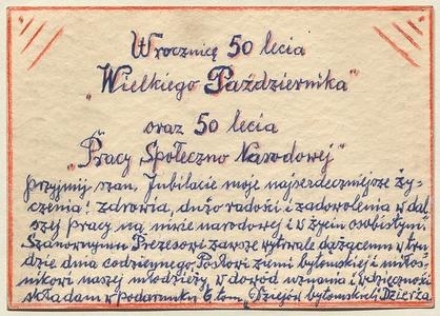 W rocznicę 50 lecia
"Wielkiego Października"
oraz 50 lecia
"Pracy Społeczno Narodowej"
przyjmij szan. Jubilacie moje najserdeczniejsze ży-
czenia: zdrowia, dużo radości i zadowolenia w dal
szej pracy na niwie narodowej i w życiu osobistym.
Szanownymu Prezesowi zawsze wytrwale dążącemu w tru
dzie dnia codziennego, Posłowi ziemi bytomskiej i miłoś-
nikowi naszej młodzieży, w dowód uznania i wdzięczności
składam w podarunku 6 tom "Dziejów bytomskich"